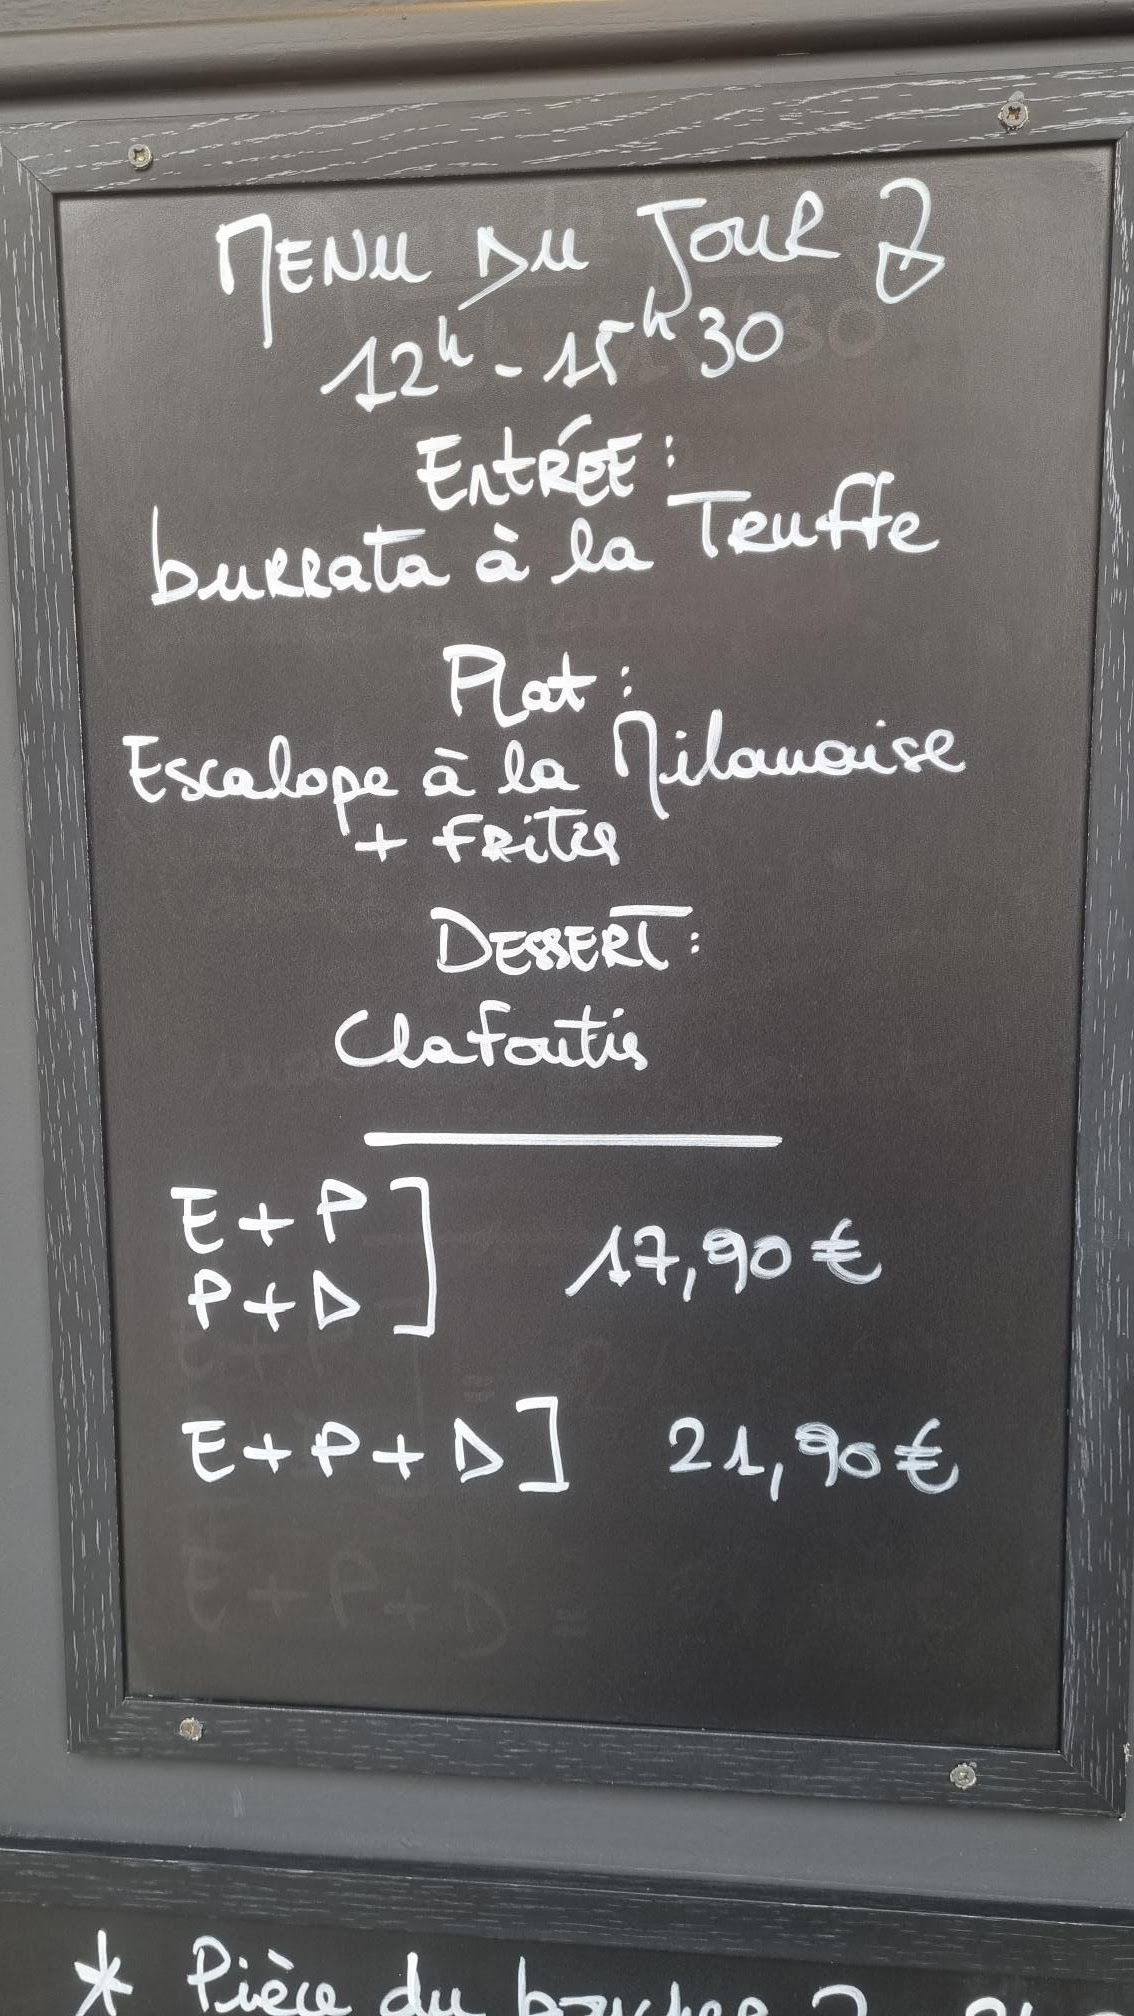 MENU DU JOUR
12h - 15h30
ENTRÉE :
burrata à la Truffe
Plat :
Escalope à la Milanaise
+ Frites
DESSERT :
Clafoutis
E + P
P + D ] 17,90 €
E + P + D ] 21,90 €
* Pièce du boucher